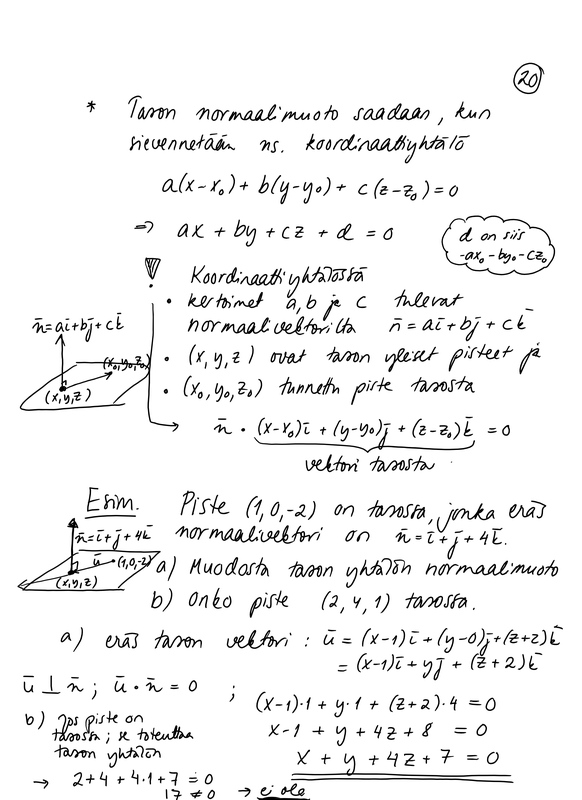 20
* Tason normaalimuoto saadaan, kun
sievennetään ns. koordinaattiyhtälö
a(x-x₀) + b(y-y₀) + c(z-z₀) = 0
⇒ ax + by + cz + d = 0
d on siis
-ax₀-by₀-cz₀
! Koordinaattiyhtälössä
• kertoimet a, b ja c tulevat
normaalivektorilta n̄ = aī + bj̄ + ck̄
• (x,y,z) ovat tason yleiset pisteet ja
• (x₀,y₀,z₀) tunnettu piste tasosta
n̄ = aī + bj̄ + ck̄
(x₀,y₀,z₀)
(x,y,z)
→ n̄ • (x-x₀)ī + (y-y₀)j̄ + (z-z₀)k̄ = 0
vektori tasosta
Esim. Piste (1,0,-2) on tasossa, jonka eräs
normaalivektori on n̄ = ī + j̄ + 4k̄.
n̄ = ī + j̄ + 4k̄
ū (1,0,-2)
(x,y,z)
a) Muodosta tason yhtälön normaalimuoto
b) Onko piste (2,4,1) tasossa.
a) eräs tason vektori : ū = (x-1)ī + (y-0)j̄ + (z+2)k̄
= (x-1)ī + yj̄ + (z+2)k̄
ū ⊥ n̄ ; ū • n̄ = 0 ;
(x-1)·1 + y·1 + (z+2)·4 = 0
x-1 + y + 4z + 8 = 0
x + y + 4z + 7 = 0
b) Jos piste on
tasossa; se toteuttaa
tason yhtälön
→ 2+4 + 4·1 + 7 = 0
17 ≠ 0 → ei ole